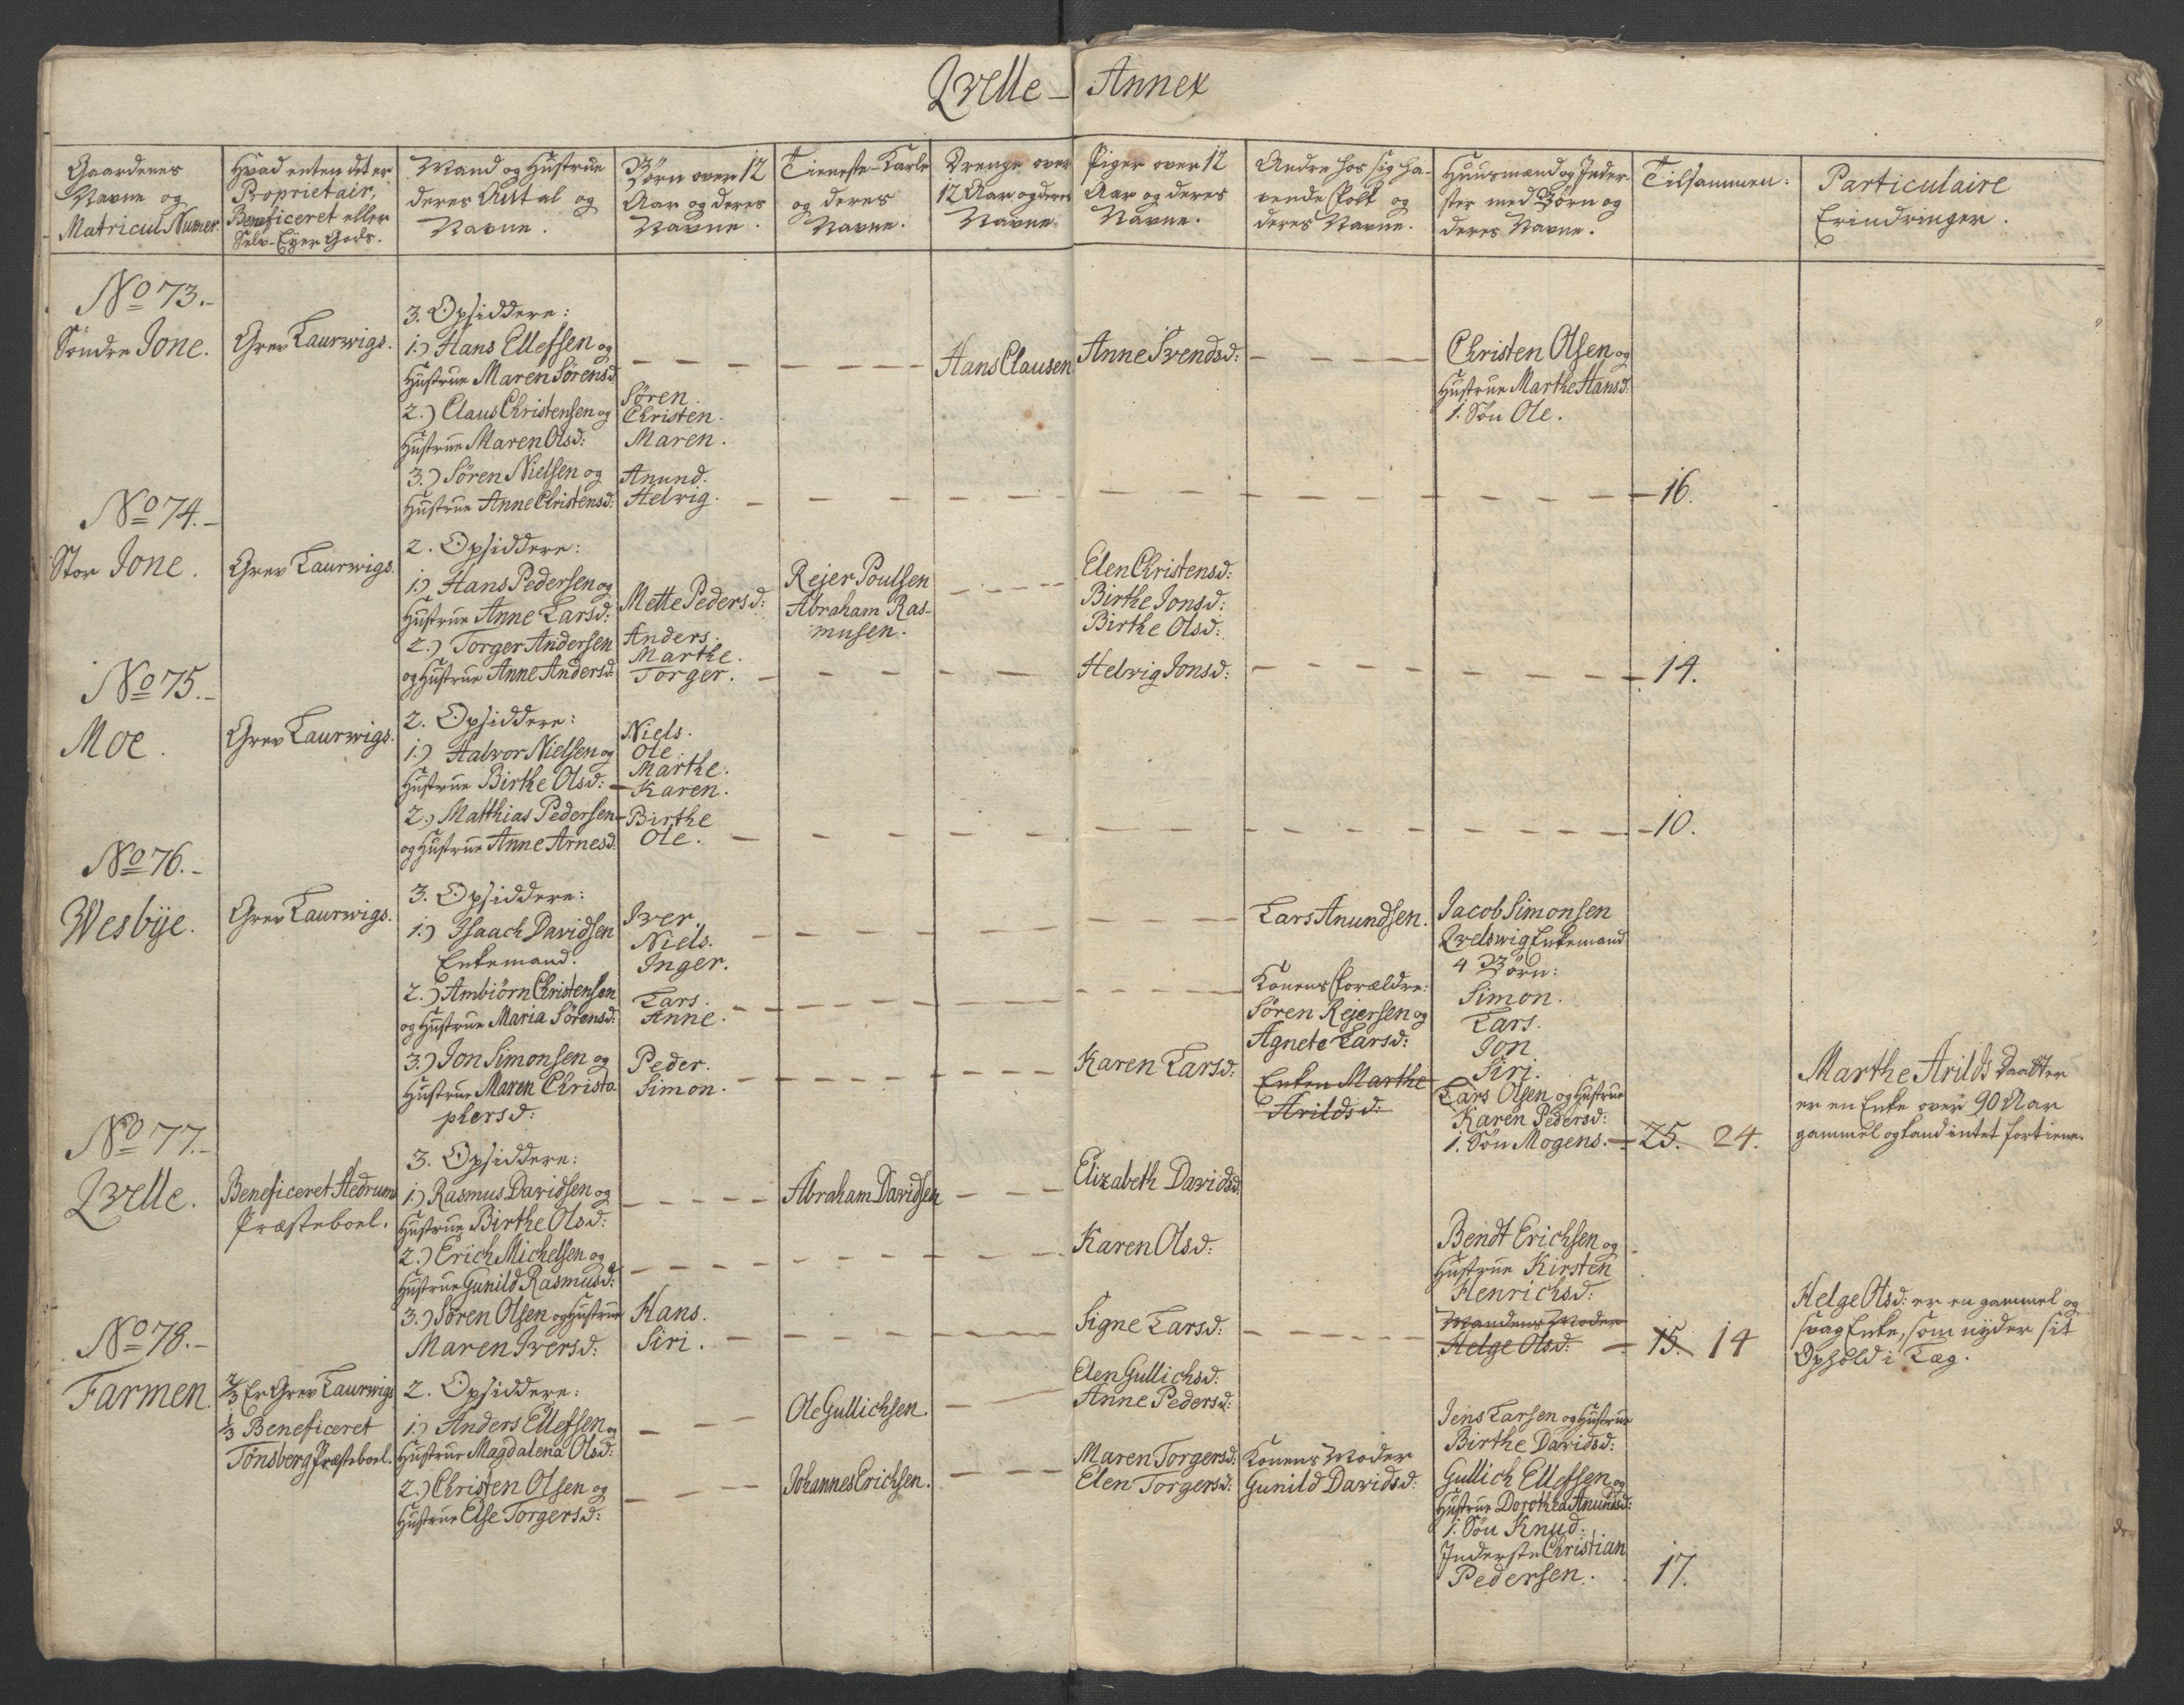 Qvelle - Annex
Gaardenes
Navne og
Matricul Numer.
Hvad enten det er
Proprietair,
Beneficeret eller
Selv-Eyer Gods.
Mand og Hustrue
deres Antal og
Navne.
Börn over 12
Aar og deres
Navne.
Tieneste-Karle
og deres
Navne.
Drenge over
12 Aar og deres
Navne.
Piger over 12
Aar og deres
Navne.
Andre hos sig ha-
vende Folk og
deres Navne.
Huusmænd og Inder-
ster med Börn og
deres Navne.
Tilsammen:
Particulaire
Erindringer.
No 73.-
Söndre Jone.
Grev Laurwigs.
3. Opsiddere:
1.) Hans Ellefsen og
Hustrue Maren Sörensd:
2.) Claus Christensen og
Hustrue Maren Olsd:
3.) Sören Nielsen og
Hustrue Anne Christensd:
Sören.
Christen.
Maren.
Anund.
Helvig.
Hans Clausen
Anne Svendsd:
Christen Olsen og
Hustrue Marthe Hansd:
1. Sön Ole.
16.
No 74.-
Stor Jone.
Grev Laurwigs.
2. Opsiddere:
1.) Hans Pedersen og
Hustrue Anne Larsd:
2.) Torger Andersen
og Hustrue Anne Andersd:
Mette Pedersd:
Anders.
Marthe.
Torger.
Rejer Poulsen
Abraham Ras-
musen.
Elen Christensd:
Birthe Jonsd:
Birthe Olsd:
Helvig Jonsd:
14.
No 75.-
Moe.
Grev Laurwigs.
2. Opsiddere:
1.) Halvor Nielsen og
Hustrue Birthe Olsd:
2.) Matthias Pedersen
og Hustrue Anne Arnesd:
Niels.
Ole.
Marthe.
Karen.
Birthe
Ole.
10.
No 76.-
Wesbÿe.
Grev Laurwigs.
3. Opsiddere:
1.) Isaach Davidsen
Enkemand.
2.) Ambiörn Christensen
og Hustrue Maria Sörensd:
3.) Jon Simonsen og
Hustrue Maren Christo-
phersd:
Iver.
Niels.
Inger.
Lars.
Anne.
Peder.
Simon.
Karen Larsd:
Lars Anundsen.
Konens Forældre:
Sören Rejersen og
Agnete Larsd:
Enken Marthe
Arildsd:
Jacob Simonsen
Qvelswig Enkemand
4 Börn:
Simon.
Lars.
Jon
Siri.
Lars Olsen og Hustrue
Karen Pedersd:
1. Sön Mogens.
25. 24.
Marthe Arilds Daatter
er en Enke over 90 Aar
gammel og kand intet fortiene.
No 77.-
Qvelle.
Beneficeret Hedrum
Præsteboel.
3. Opsiddere:
1.) Rasmus Davidsen og
Hustrue Birthe Olsd:
2.) Erich Michelsen og
Hustrue Gunild Rasmusd:
3.) Sören Olsen og Hustrue
Maren Iversd:
Hans.
Siri.
Abraham Davidsen
Elizabeth Davidsd:
Karen Olsd:
Signe Larsd:
Bendt Erichsen og
Hustrue Kirsten
Henrichsd:
Mandens Moder
Helge Olsd:
15. 14
Helge Olsd: er en gammel og
svag Enke, som nÿder sit
Ophold i Læg.
No 78.-
Farmen.
2/3 Er Grev Laurwigs
1/3 Beneficeret
Tönsberg Præsteboel.
2. Opsiddere:
1.) Anders Ellefsen og
Hustrue Magdalena Olsd:
2.) Christen Olsen og
Hustrue Else Torgersd:
Ole Gullichsen.
Johannes Erichsen.
Elen Gullichsd:
Anne Pedersd:
Maren Torgersd:
Elen Torgersd:
Konens Moder
Gunild Davidsd:
Jens Larsen og Hustrue
Birthe Davidsd:
Gullich Ellefsen og
Hustrue Dorothea Anundsd:
1. Sön Knud:
Inderste Christian
Pedersen.
17.